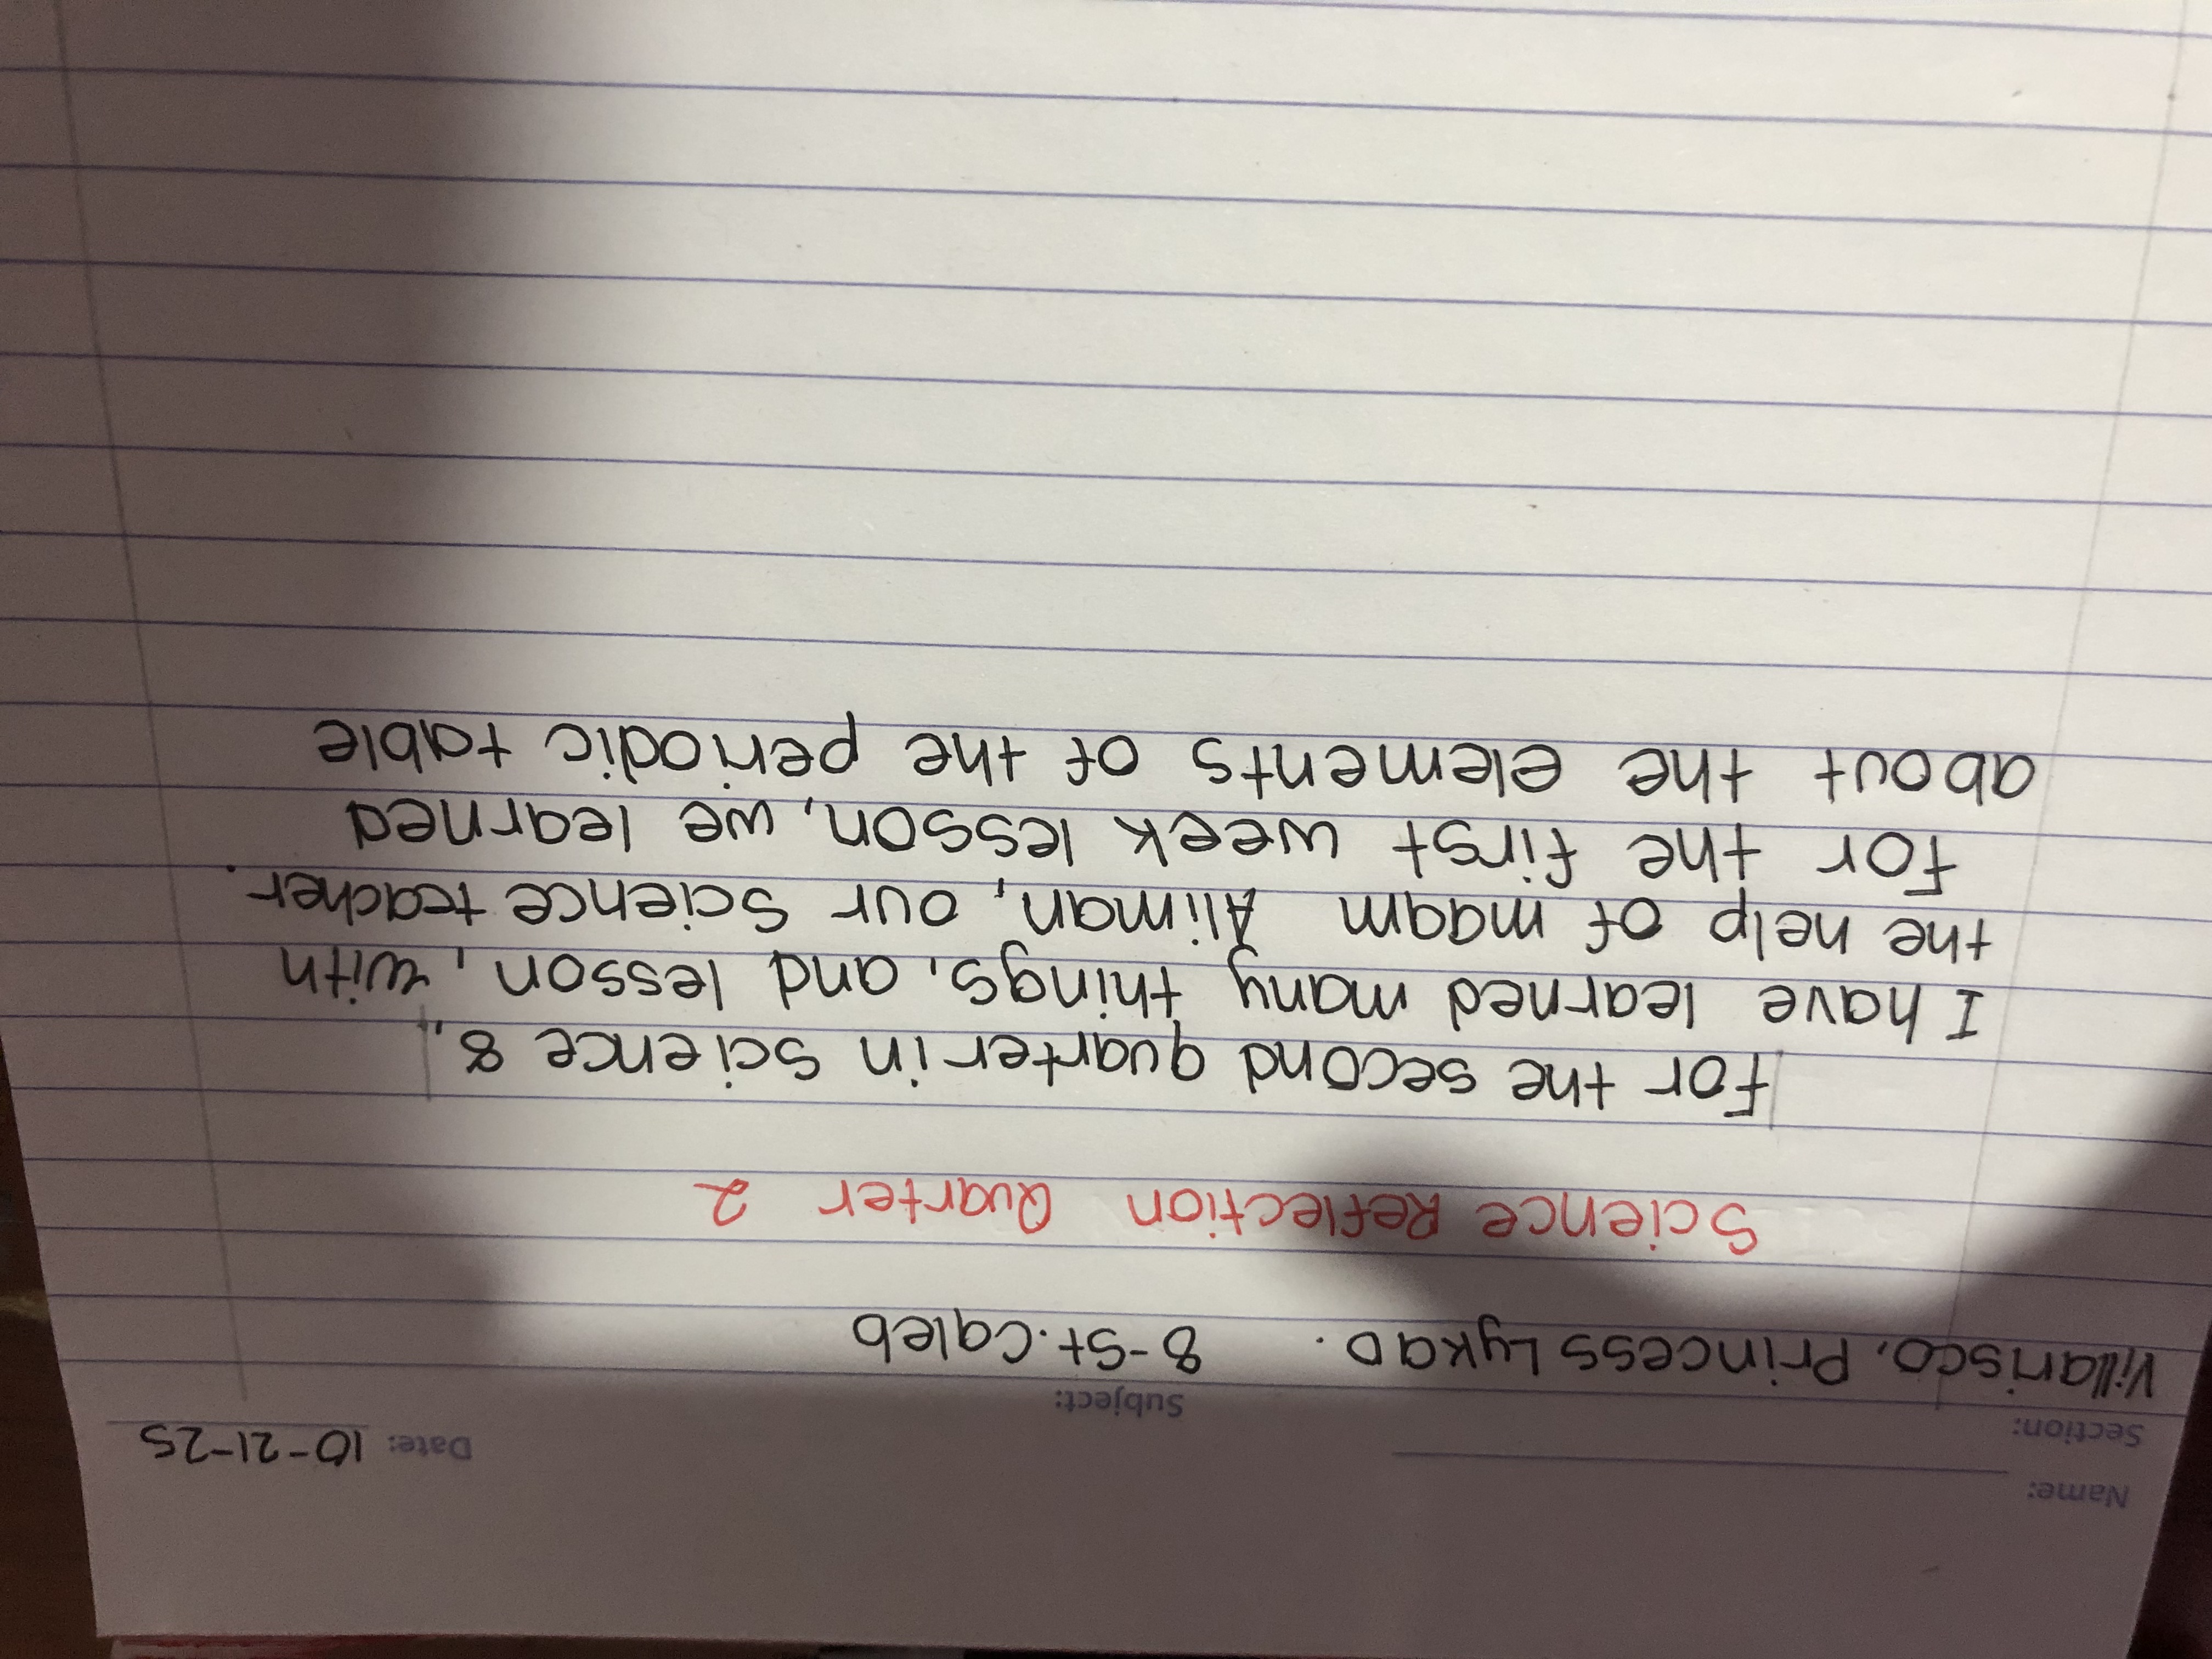 Name:
Section:
Subject:
Date: 10-21-25
Villarisco, Princess Lyka D. 8-St. Caleb
Science Reflection Quarter 2
For the second quarter in Science 8,
I have learned many things, and lesson, with
the help of maam Aliman, our Science teacher.
For the first week lesson, we learned
about the elements of the periodic table